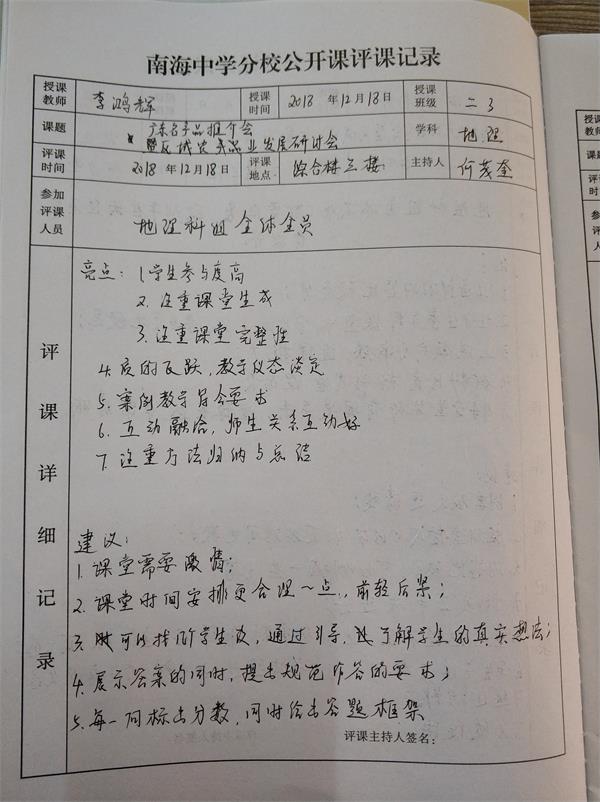 南海中学分校公开课评课记录
授课教师 李鸿辉 授课时间 2018 年12月18日 授课班级 二3
课题 广东名产品推介会
暨区域农产品业发展研讨会 学科 地理
评课时间 2018 年12月18日 评课地点 综合楼三楼 主持人 何茂奎
参加评课人员 地理科组全体全员
评课详细记录
亮点：1.学生参与度高
2.注重课堂生成
3.注重课堂完整性
4.质的飞跃，教学仪态淡定
5.案例教学符合要求
6.互动融洽，师生关系互动好
7.注重方法归纳与总结
建议：
1.课堂需要激情；
2.课堂时间安排更合理一点，前轻后紧；
3.可以找个学生次，通过引导，了解学生的真实想法；
4.展示答案的同时，提出规范作答的要求；
5.每一问标出分数，同时给出答题框架
评课主持人签名：
授课教师
课题
评课时间
参加
评课
人员